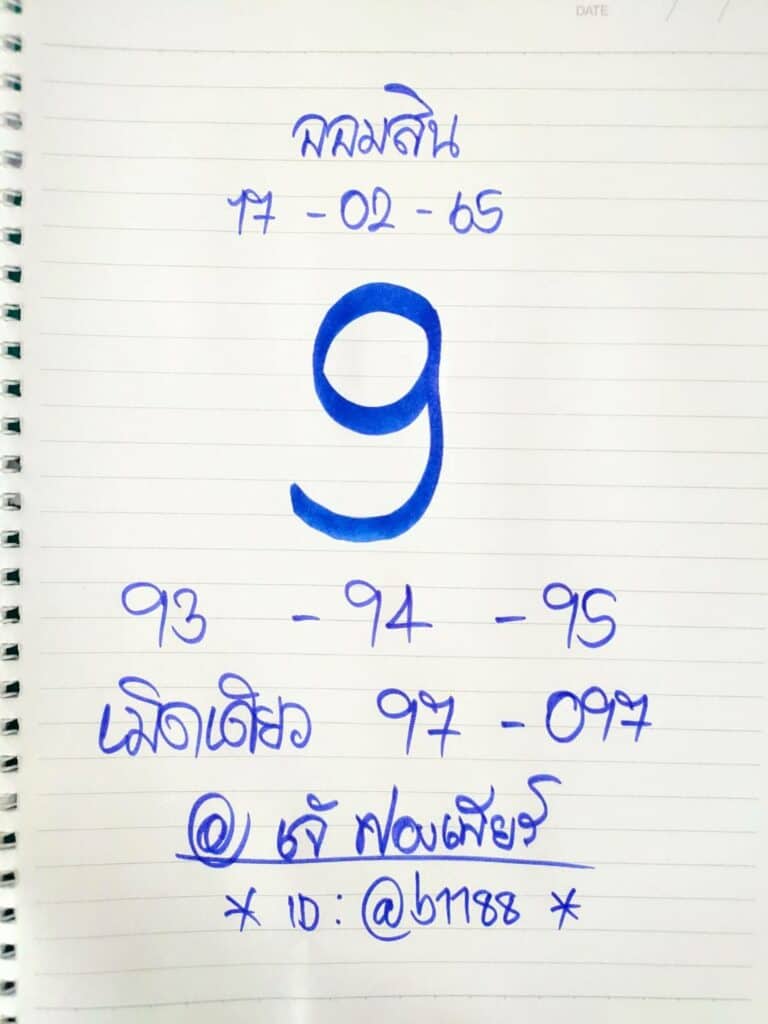 DATE / /
ออมสิน
17 - 02 - 65
9
93 - 94 - 95
เม็ดเดียว 97 - 097
@ เจ๊ ฟองเบียร์
* ID : @b1188 *